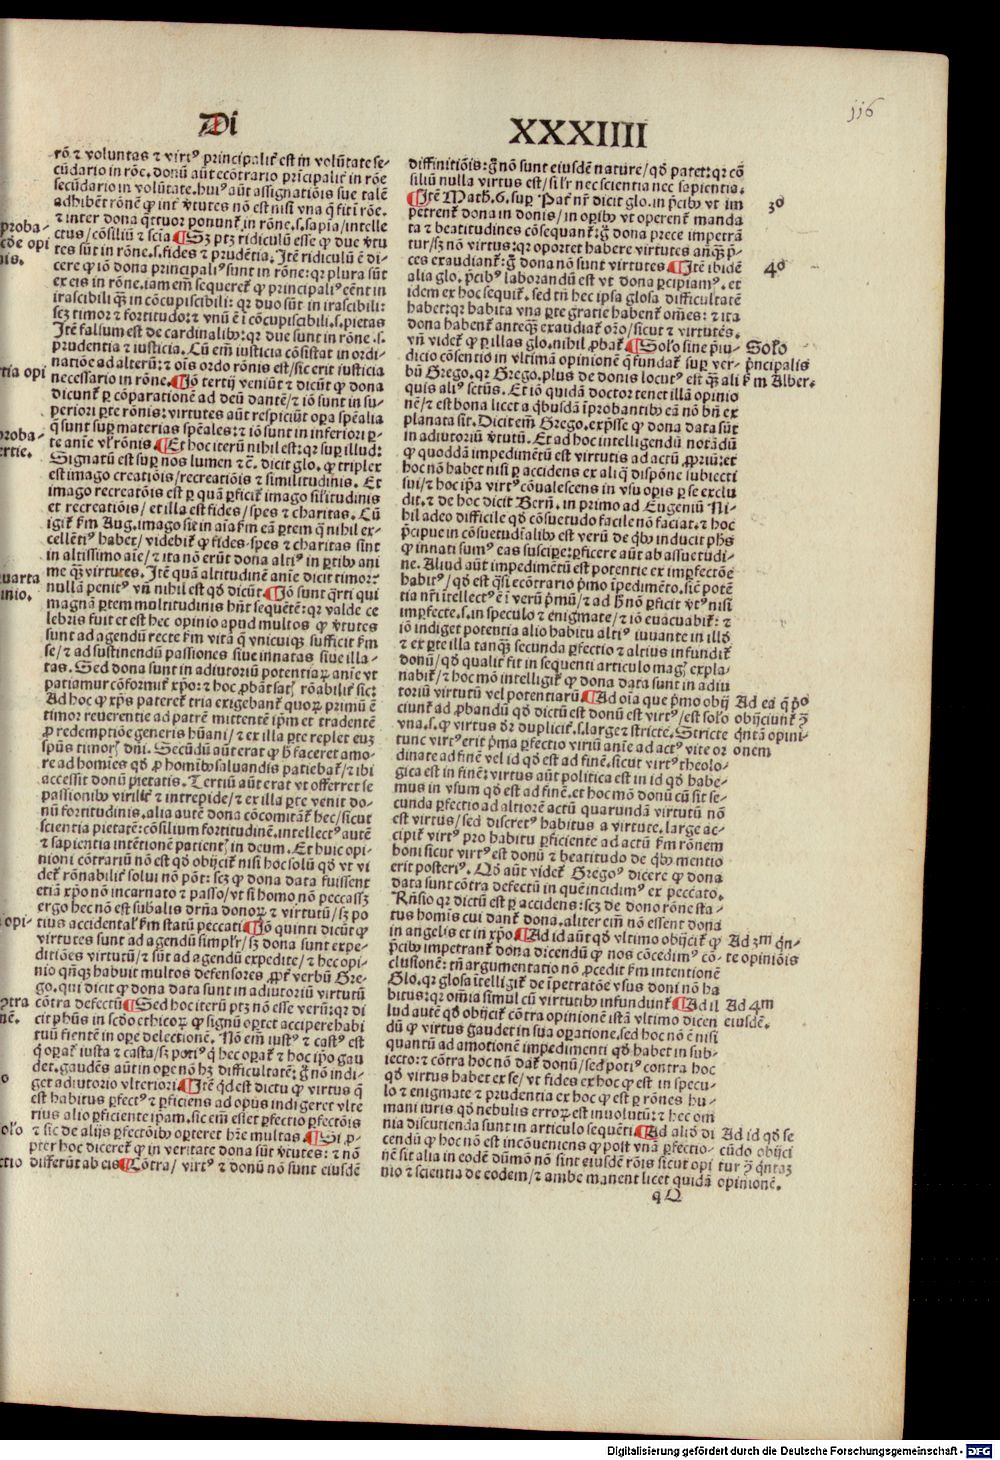 116
Di
XXXIIII
rō ⁊ voluntas ⁊ virtꝰ principalit᷑ est in volūtate se-
cūdario in rōe. donū aūt ecōtrario pricipalit᷑ in rōe
secūdario in volūtate. huiꝰ aūt assignatiōis sue talē
adhibēt rōnē ꝙ int᷑ v̓tutes nō est nisi vna q̄ sit ī rōe.
⁊ inter dona q̄ttuor ponunt᷑ in rōne .s. sapīa/ intelle
ctus/ cōsiliū ⁊ scīa ¶Sꝫ ptꝫ ridiculū esse ꝙ due v̓tu
tes sūt in rōne .s. fides ⁊ prudētia. Itē ridiculū ē di-
cere ꝙ iō dona principaliꝰ sunt in rōne: qꝛ plura sūt
ex eis in rōne. iam em̄ sequeret᷑ ꝙ principaliꝰ eēnt in
irascibili qꝫ in cōcupiscibili: qꝛ duo sūt in irascibili:
scꝫ timor ⁊ fortitudo: ⁊ vnū ē ī cōcupiscibili .s. pietas
Itē falsum est de cardinalibꝰ: qꝛ due sunt in rōne .s.
prudentia ⁊ iusticia. Cū em̄ iusticia cōsistat in ordi-
natiōe ad alterū: ⁊ oīs ordo rōnis est/ sic erit iusticia
necessario in rōne. ¶Iō tertij veniūt ⁊ dicūt ꝙ dona
dicunt᷑ ꝑ cōparationē ad deū dantē/ ⁊ iō sunt in su-
periori ꝑte rōnis: virtutes aūt respiciūt oꝑa spēalia
q̄ sunt suꝑ materias spēales: ⁊ iō sunt in inferiori ꝑ-
te aīe vl̓ rōnis. ¶Et hoc iterū nihil est: qꝛ suꝑ illud:
Signatū est suꝑ nos lumen ⁊ c̄. dicit glo. ꝙ triplex
est imago creatiōis/ recreatiōis ⁊ similitudinis. Et
imago recreatōis est ꝑ quā ꝑficit᷑ imago sil̓itudinis
et recreatiōis/ et illa est fides/ spes ⁊ charitas. Cū
igit᷑ ẜm Aug. imago sit in aīa ẜm eā ꝑtem q̄ nihil ex-
cellētiꝰ habet/ videbit᷑ ꝙ fides spes ⁊ charitas sint
in altissimo aīe/ ⁊ ita nō erūt dona altiꝰ in ꝑtibꝰ ani
me qꝫ virtutes. Itē quā altitudinē anīe dicit timor:
nullā penitꝰ vn̄ nihil est qd̓ dicūt. ¶Iō sunt q̄rti qui
magnā ꝑtem multitudinis hn̄t sequētē: qꝛ valde ce
lebris fuit et est hec opinio apud multos ꝙ v̓tutes
sunt ad agendū recte ẜm vitā q̄ vnicuiqꝫ sufficit ẜm
se/ ⁊ ad sustinendū passiones siue innatas siue illa-
tas. Sed dona sunt in adiutoriū potentiaꝝ anīe vt
patiamur cōformit᷑ xp̄o: ⁊ hoc ꝓbāt satꝭ rōabilit᷑ sic:
Ad hoc ꝙ xp̄s pateret᷑ tria exigebant᷑ quoꝝ primū ē
timor reuerentie ad patrē mittentē ip̄m et tradentē
ꝓ redemptiōe generis hūani/ ⁊ ex illa ꝑte replet euꝫ
spūs timorꝭ dn̄i. Secūdū aūt erat ꝙ hͦ faceret amo-
re ad homīes qd̓ ꝓ homībꝰ saluandis patiebat᷑/ ⁊ ibi
accessit donū pietatis. Tertiū aūt erat vt offerret se
passionibꝰ virilit᷑ ⁊ intrepide/ ⁊ ex illa ꝑte venit do-
nū fortitudinis. alia autē dona cōcomitāt᷑ hec/ sicut
scientia pietatē: cōsilium fortitudinē. intellectꝰ autē
⁊ sapientia intētionē patientꝭ in deum. Et huic opi-
nioni cōtrariū nō est qd̓ obijcit᷑ nisi hoc solū qd̓ vt vi
det᷑ rōnabilit᷑ solui nō pōt: scꝫ ꝙ dona data fuissent
etiā xp̄o nō incarnato ⁊ passo/ vt si homo nō peccassꝫ
ergo hec nō est subalis dr̄na donoꝝ ⁊ virtutū/ sꝫ po
tius accidental̓ ẜm statū peccati ¶Iō quinti dicūt ꝙ
virtutes sunt ad agendū simplr̓/ sꝫ dona sunt expe-
ditiōes virtutū/ ⁊ sūt ad agendū expedite/ ⁊ hec opi-
nio qn̄qꝫ habuit multos defensores ꝓpt᷑ verbū Gre-
go. qui dicit ꝙ dona data sunt in adiutoriū virtutū
cōtra defectū ¶Sed hoc iterū ptꝫ nō esse verū: qꝛ di
cit ph̄us in scd̓o ethicoꝝ ꝙ signū oꝑtet accipere habi
tuū fientē in oꝑe delectionē. Nō em̄ iustꝰ ⁊ castꝰ est
q̄ oꝑat᷑ iusta ⁊ casta/ sꝫ potiꝰ q̄ hec oꝑat᷑ ⁊ hoc ip̄o gau
det. gaudēs aūt in oꝑe nō hꝫ difficultatē: g̊ nō indi-
get adiutorio vlteriori. ¶Itē qd̓ est dictu ꝙ virtus q̄
est habitus ꝑfectꝰ ⁊ ꝑficiens ad opus indigeret vlte
rius alio ꝑficiente ip̄am. sic em̄ esset ꝑfectio ꝑfectōis
⁊ sic de alijs ꝑfectōibꝰ oꝑteret hr̄e multas. ¶Si ꝓ-
pter hoc diceret᷑ ꝙ in veritate dona sūt v̓tutes: ⁊ nō
differūt ab eis ¶Cōtra/ virtꝰ ⁊ donū nō sunt eiusdē
diffinitiōis: g̊ nō sunt eiusdē nature/ qd̓ patet: qꝛ cō
siliū nulla virtus est/ sil̓r nec scientia nec sapientia.
¶Itē Math. 6. suꝑ Pat᷑ nr̄ dicit glo. in p̄cibꝰ vt im
petrent᷑ dona in donis/ in oꝑibꝰ vt operent᷑ manda
ta ⁊ beatitudines cōsequant᷑: g̊ dona prece impetrā
tur/ sꝫ nō virtus: qꝛ oportet habere virtutes anqꝫ p̄-
ces exaudiant᷑: g̊ dona nō sunt virtutes. ¶Itē ibidē
alia glo. p̄cibꝰ laborandū est vt dona ꝑcipiamꝰ. et
idem ex hoc sequit᷑. sed tn̄ hec ipsa glosa difficultatē
habet: qꝛ habita vna ꝑte gratie habent᷑ om̄es: ⁊ ita
dona habent᷑ anteqꝫ exaudiat᷑ or̄o/ sicut ⁊ virtutes.
vn̄ videt᷑ ꝙ ꝑ illas glo. nihil ꝓbat᷑ ¶Sol̓o sine p̄iu-
dicio cōsentio in vltimā opinionē q̄ fundat᷑ suꝑ ver-
bū Grego. qꝛ Grego. plus de donis locutꝰ est qꝫ ali
quis aliꝰ sctūs. Et iō quidā doctor tenet illā opinio
nē/ ⁊ est bona licet a qͥbusdā īprobantibꝰ eā nō bn̄ ex
planata sit. Dicit em̄ Grego. exp̄sse ꝙ dona data sūt
in adiutoriū v̓tutū. Et ad hoc intelligendū notādū
ꝙ quoddā impedimētū est virtutis ad actū ꝓpriū: et
hoc nō habet nisi ꝑ accidens ex aliqͣ dispōne subiecti
sui/ ⁊ hoc ip̄a virtꝰ cōualescens in vsu oꝑis ꝑ se exclu
dit. ⁊ de hoc dicit Bern̄. in primo ad Eugeniū Ni-
hil adeo difficile qd̓ cōsuetudo facile nō faciat. ⁊ hoc
p̄cipue in cōsuetudīalibꝰ est verū de qͥbꝰ inducit ph̄s
ꝙ innati sumꝰ eas suscipe: ꝑficere aūt ab assuetudi-
ne. Aliud aūt impedimētū est potentie ex imꝑfectōe
habitꝰ/ qd̓ est qͣsi ecōtrario p̄mo īpedimēto. sic̄ potē
tia nr̄i ītellectꝰ ē ī verū p̄mū/ ⁊ ad hͦ nō ꝑficit v̓tꝰ nisi
imꝑfecte .s. in speculo ⁊ enigmate/ ⁊ iō euacuabit᷑: ⁊
iō indiget potentia alio habitu altiꝰ iuuante in illō
⁊ ex ꝑte illa tanqꝫ secunda ꝑfectio ⁊ altius infundit᷑
donū/ qd̓ qualit᷑ fit in sequenti articulo magꝭ expla-
nabit᷑/ ⁊ hoc mō intelligit᷑ ꝙ dona data sunt in adiu
toriū virtutū vel potentiarū ¶Ad oīa que p̄mo obij
ciunt᷑ ad ꝓbandū qd̓ dictū est donū est virtꝰ/ est sol̓o
vna .s. ꝙ virtus dr̄ duplicit᷑ .s. large ⁊ stricte. Stricte
tunc virtꝰ erit p̄ma ꝑfectio viriū anīe ad actꝰ vite or
dinate ad finē vel id qd̓ est ad finē. sicut virtꝰ theolo-
gica est in finē: virtus aūt politica est in id qd̓ habe-
mus in vsum qd̓ est ad finē. et hoc mō donū cū sit se-
cunda ꝑfectio ad altiorē actū quarundā virtutū nō
est virtus/ sed discretꝰ habitus a virtute. large ac-
cipit᷑ virtꝰ pro habitu ꝑficiente ad actū ẜm rōnem
boni sicut virtꝰ est donū ⁊ beatitudo de qͥbꝰ mentio
erit posteriꝰ. Qd̓ aūt videt᷑ Gregoꝰ dicere ꝙ dona
data sunt cōtra defectū in quē incidimꝰ ex peccato.
Rn̄sio qꝛ dictū est ꝑ accidens: scꝫ de dono rōne sta-
tus homīs cui dant᷑ dona. aliter em̄ nō essent dona
in angelis et in xp̄o. ¶Ad id aūt qd̓ vltimo obijcit᷑ ꝙ
p̄cibꝰ impetrant᷑ dona dicendū ꝙ nos cōcedimꝰ cō-
clusionē: tn̄ argumentatio nō ꝓcedit ẜm intentionē
Glo. qꝛ glosa ītelligit᷑ de īpetratōe vsus doni nō ha
bitus: qꝛ om̄ia simul cū virtutibꝰ infundunt᷑ ¶Ad il
lud autē qd̓ obijcit᷑ cōtra opinionē istā vltimo dicen
dū ꝙ virtus gaudet in sua oꝑatione. sed hoc nō ē nisi
quantū ad amotionē impedimenti qd̓ habet in sub-
iecto: ⁊ cōtra hoc nō dat᷑ donū/ sed potiꝰ contra hoc
qd̓ virtus habet ex se/ vt fides ex hoc ꝙ est in specu-
lo ⁊ enigmate ⁊ prudentia ex hoc ꝙ est ꝑ rōnes hu-
mani iuris qd̓ nebulis erroꝝ est inuolutū: ⁊ hec om̄
nia discutienda sunt in articulo sequēti. ¶Ad aliō di
cendū ꝙ hoc nō est incōueniens ꝙ post vnā ꝑfectio-
nē sit alia in eodē dūmō nō sint eiusdē rōis sicut opi
nio ⁊ scientia de eodem/ ⁊ ambe manent licet quidā
q Q
3º
4º
Sol̓o
p̄ncipalis
ẜm Alber.
Ad ea q̄ p̄o
obijciunt᷑ ꝯ̄
qn̄tā opini-
onem
Ad 3m qn̄-
te opiniōis
Ad 4m
eiusdē.
Ad id qd̓ se
cūdo obijci
tur ꝯ̄ qn̄taꝫ
opinionē.
proba-
cōe opi
nis.
tia opi
proba-
ertie.
uarta
inio.
opi-
ptra
nē.
o
ol̓o
ctio
Digitalisierung gefördert durch die Deutsche Forschungsgemeinschaft - DFG